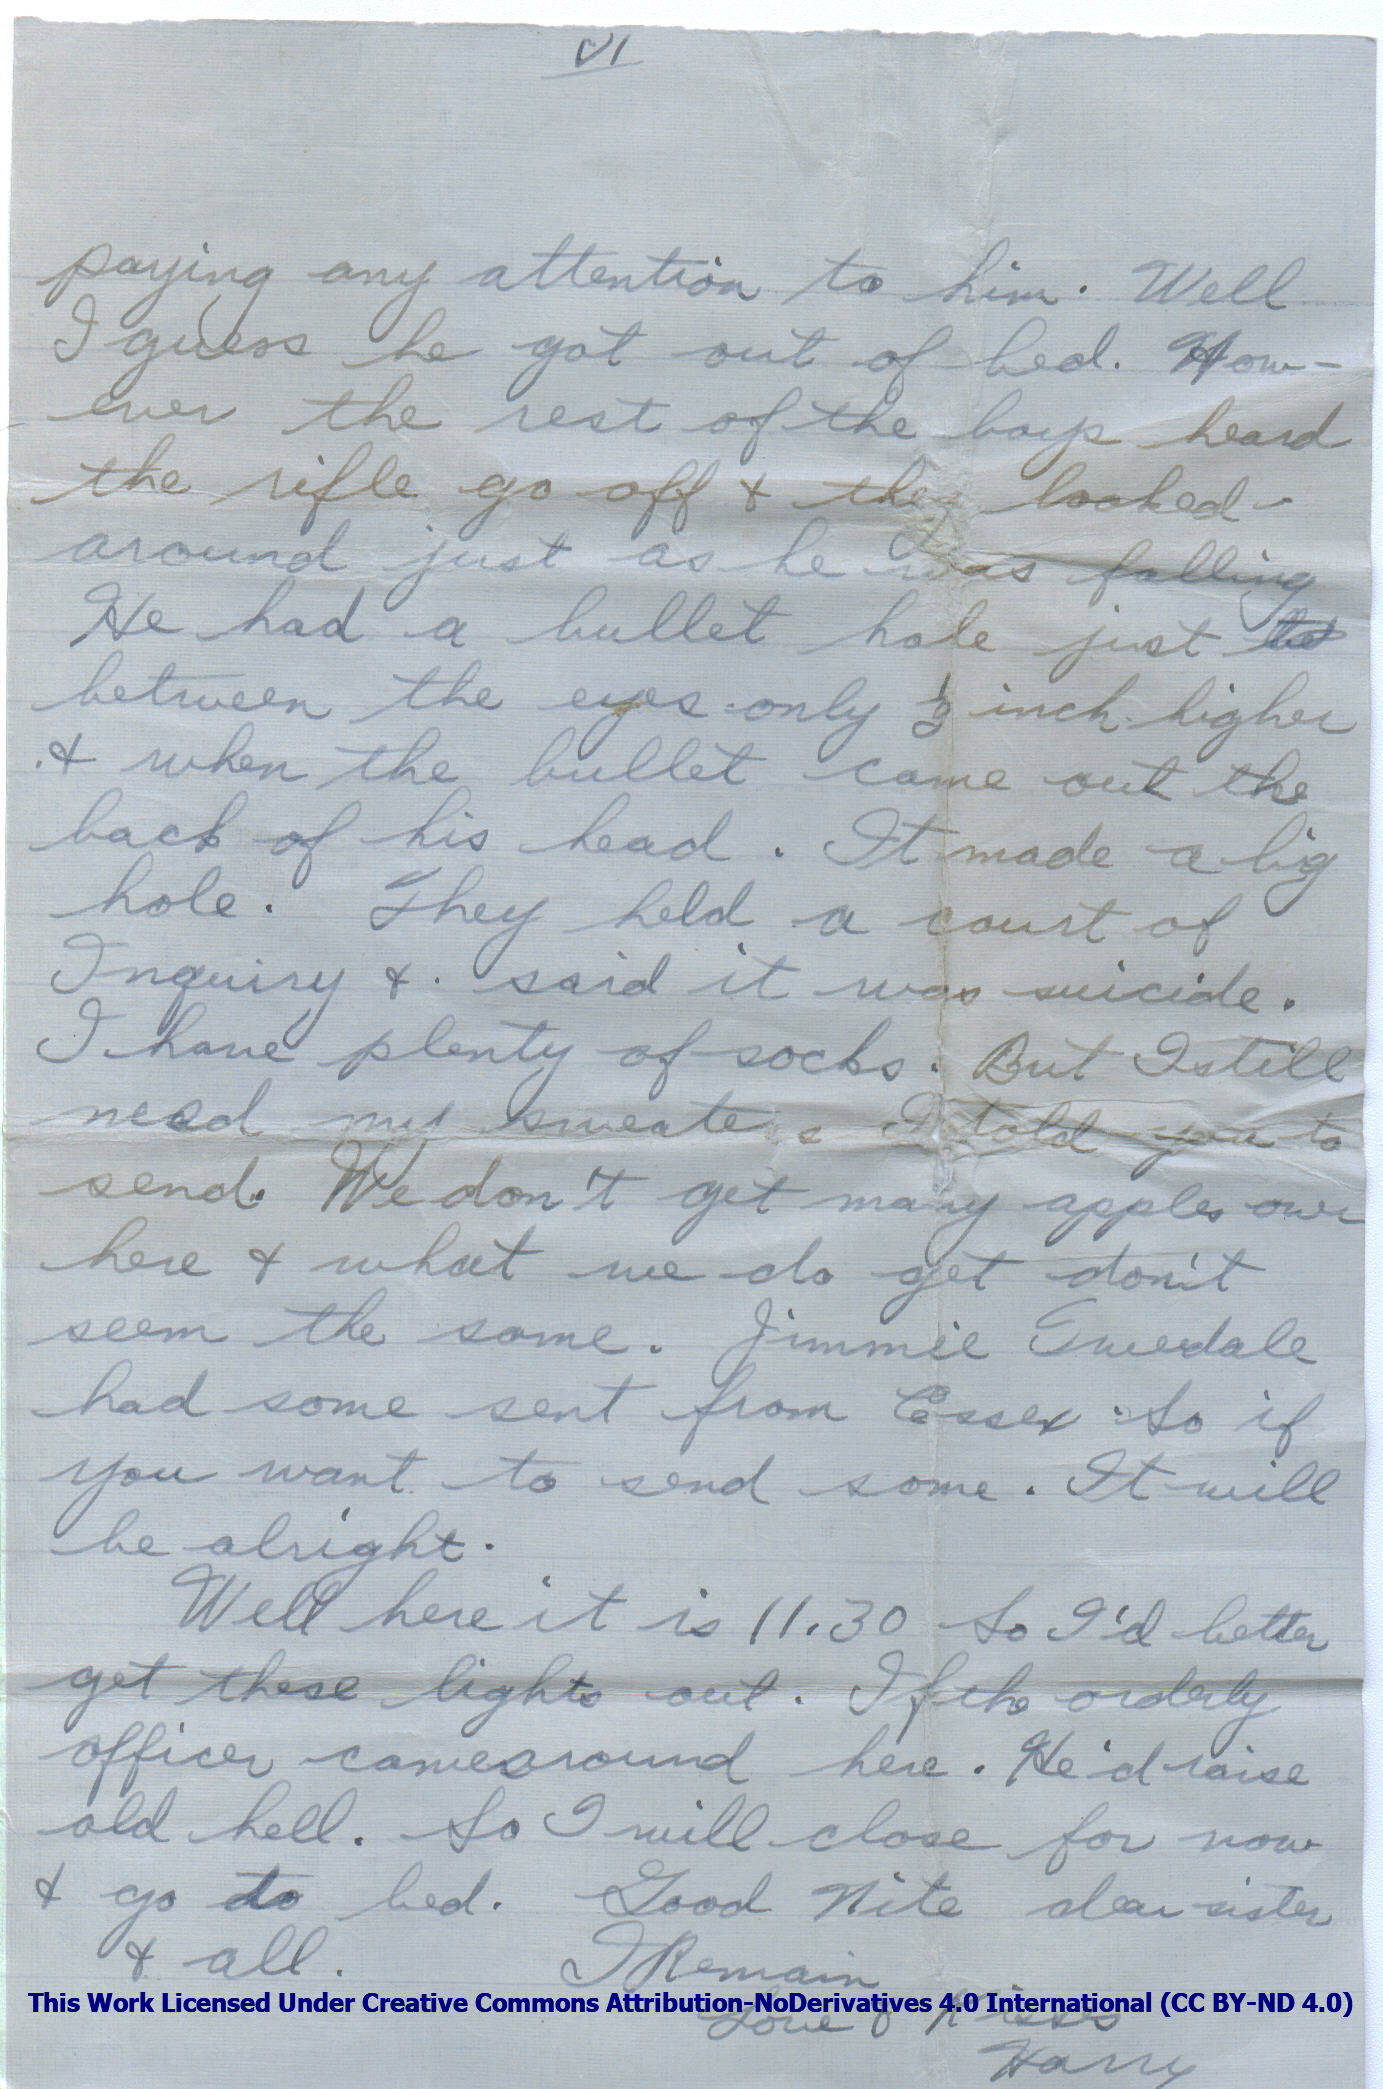 VI
paying any attention to him. Well
I guess he got out of bed. How-
ever the rest of the boys heard
the rifle go off & they looked
around just as he was falling
He had a bullet hole just
between the eyes only ½ inch higher
& when the bullet came out the
back of his head. It made a big
hole. They held a court of
Inquiry & said it was suicide.
I have plenty of socks. But I still
need my sweater I told you to
send. We don't get many apples over
here & what we do get don't
seem the same. Jimmie
had some sent from Essex. So if
you want to send some. It will
be alright.
Well here it is 11.30 So I'd better
get these lights out. If the orderly
officer came around here. He'd raise
old hell. So I will close for now
& go to bed. Good Nite dear sister
& all. I Remain
This Work Licensed Under Creative Commons Attribution-NoDerivatives 4.0 International (CC BY-ND 4.0)
Love & Kisses
Harry